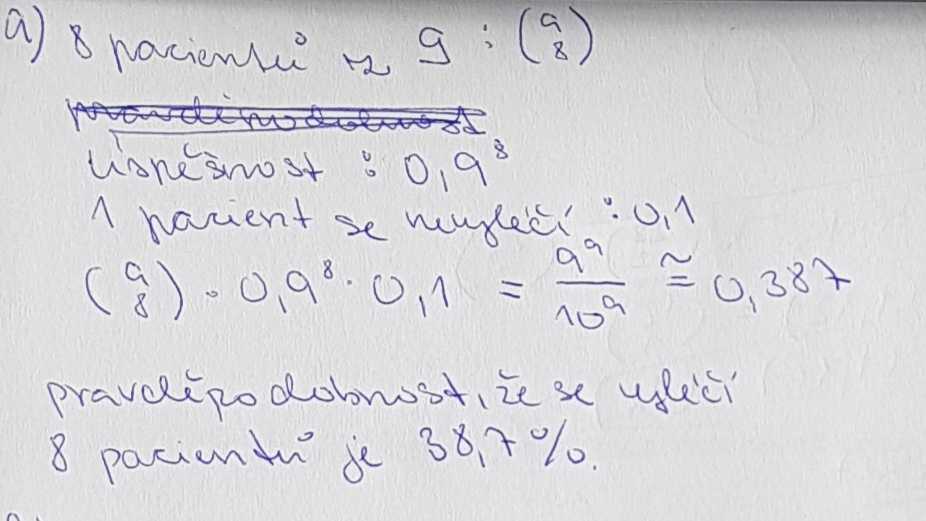 a) 8 pacientů z 9 : (9 8)
pravděpodobnost
úspěšnost : 0,9⁸
1 pacient se nevyléčí : 0,1
(9 8) · 0,9⁸ · 0,1 = 9⁹/10⁹ ≅ 0,387
pravděpodobnost, že se vyléčí
8 pacientů je 38,7 %.